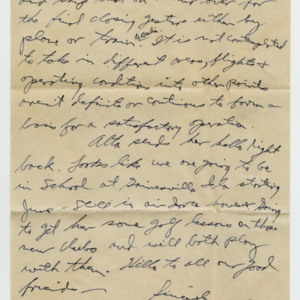 and over for
the final closing gesture either by
plane or train. It is not contemplated
to take in different crazy flights &
operating condition into other points
aren't definite or continuous to form a
basis for a satisfactory operation.
Alta sends her hello right
back. Looks like we are going to be
in School at Gainesville Fla starting
June. Still in air dare however going
to get her some golf lessons on those
new clubs and will both play
with them. Hello to all our good
friends —
Sincerely